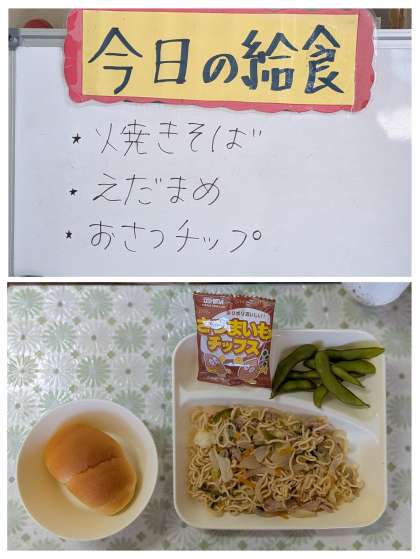 今日の給食
★ 焼きそば
★ えだまめ
★ おさつチップ
さつまいも
チップス